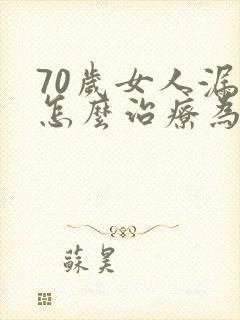 70歲女人漏
怎麼治療為
蘇昊